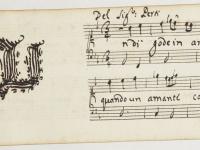 Del Sig.r Peri
U
n dì gode in a
quando un amante co